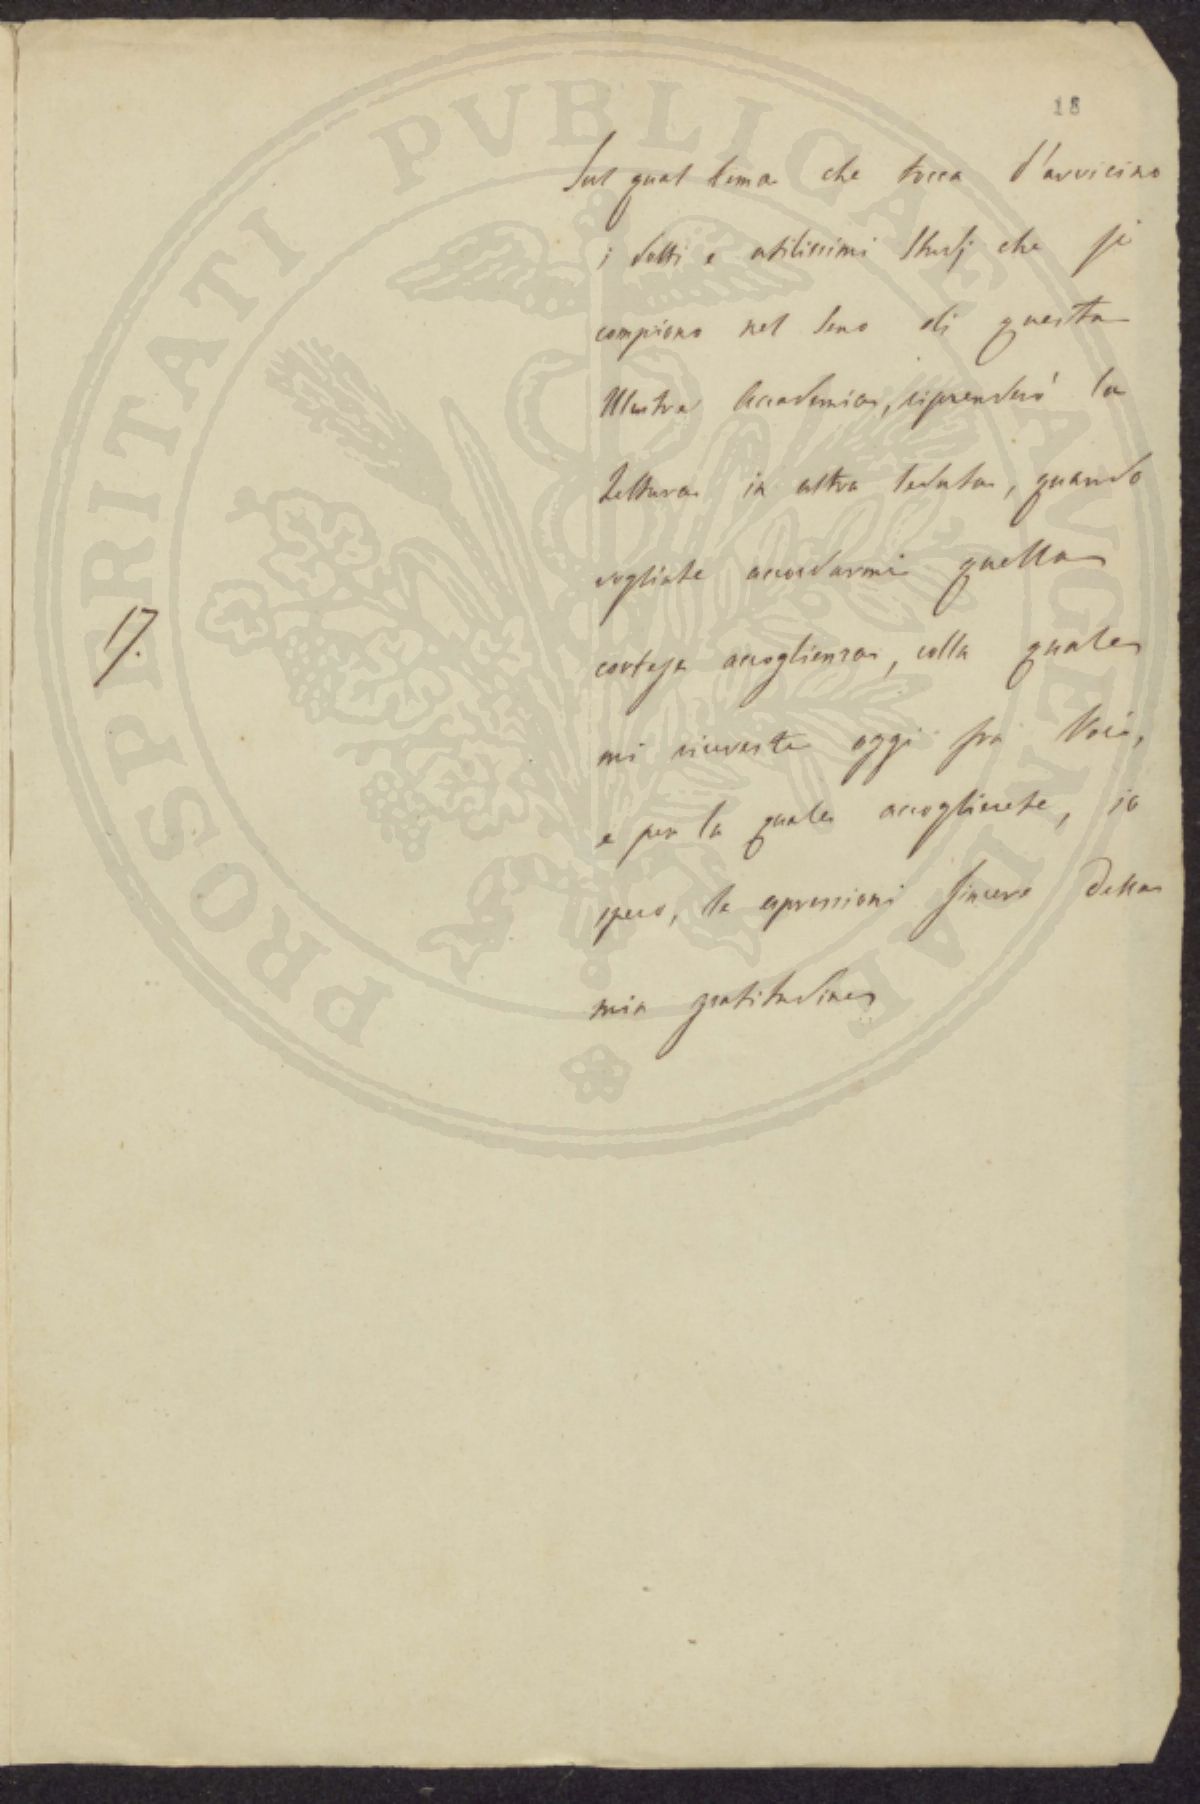 18
Sul qual tema che tocca d'avvicino
i dotti e utilissimi Studj che si
compiono nel Seno di questa
Illustre Accademia, riprenderò la
Lettura in altra Seduta, quando
vogliate accordarmi quella
cortese accoglienza, colla quale
17.
mi riceveste oggi fra Voi,
e per la quale accoglierete, io
spero, le espressioni Sincere della
mia gratitudine
PROSPERITATI PVBLICAE AVGENDAE